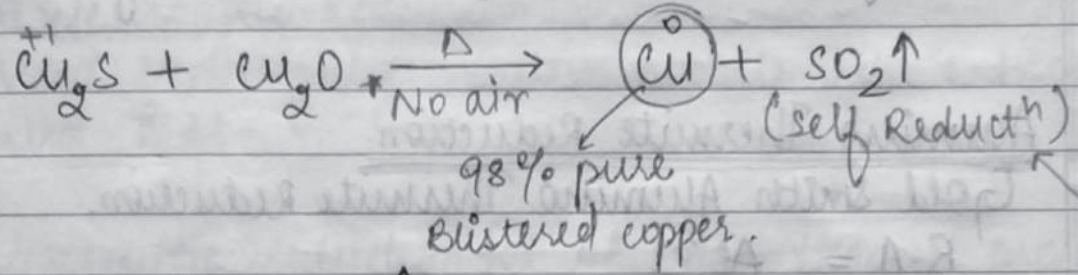 +1 0
Cu₂S + Cu₂O Δ No air → Cu + SO₂↑
(self Reductⁿ)
98% pure
Blistered copper.